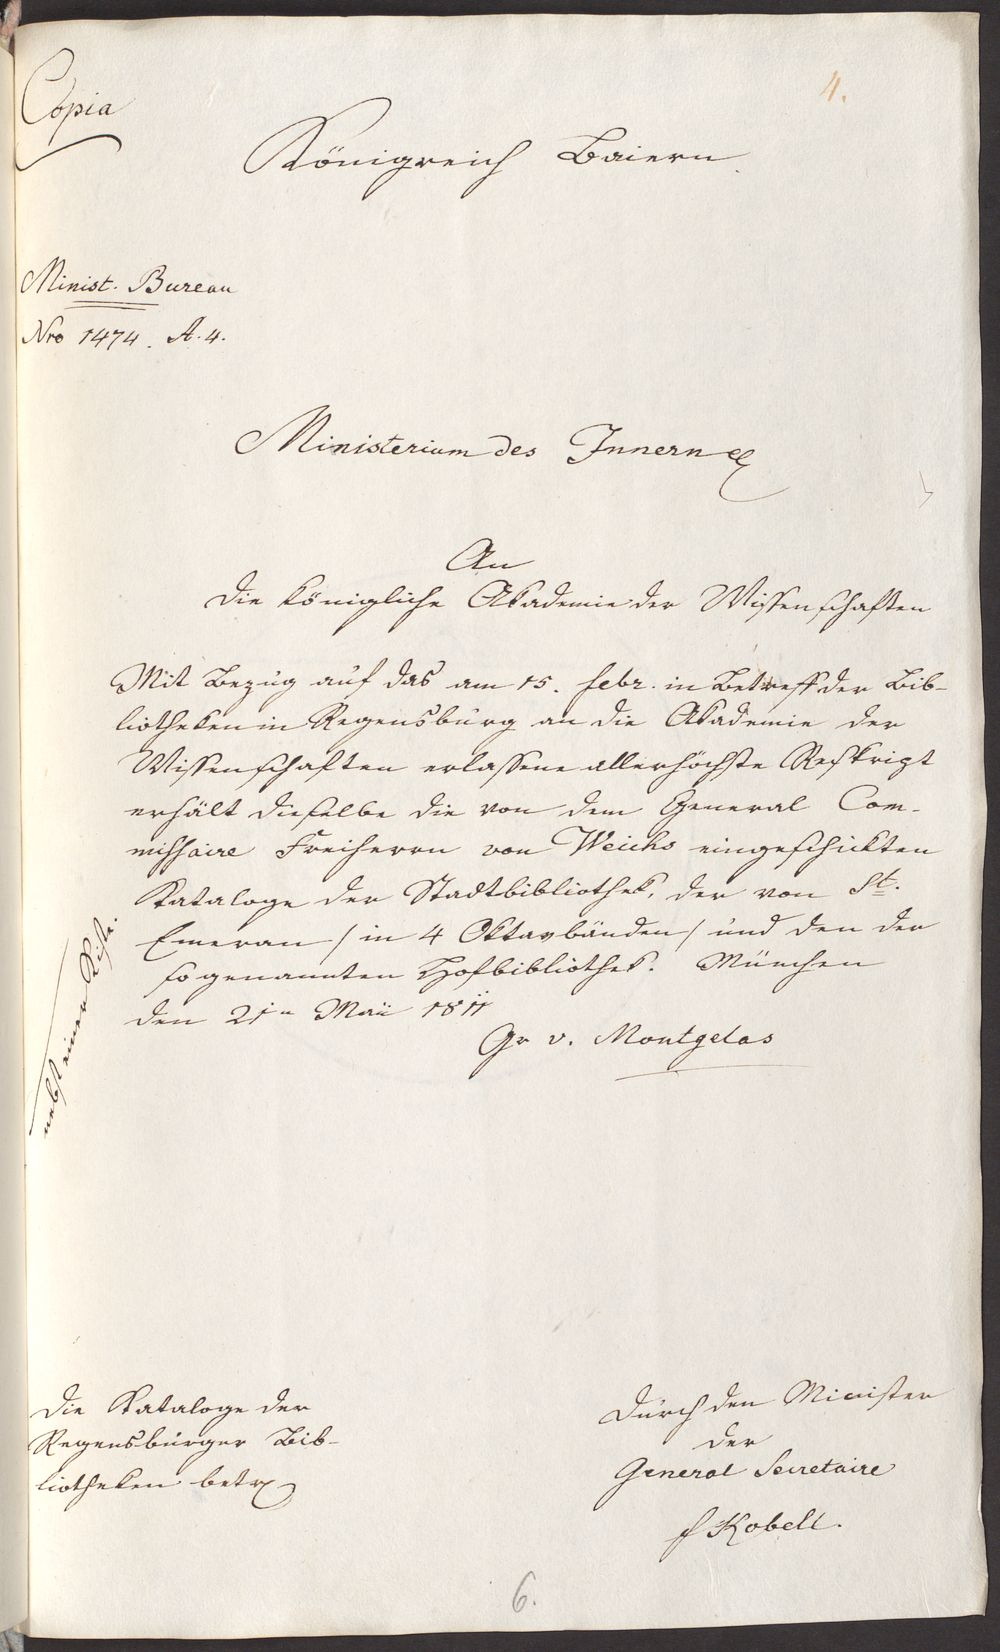 Copia
4.
Königreich Baiern.
Minist. Bureau
Nro 1474. A. 4.
Ministerium des Innern
An
die königliche Akademie der Wissenschaften
Mit Bezug auf das am 15. febr. in Betreff der Bib-
liotheken in Regensburg an die Akademie der
Wissenschaften erlassene allerhöchste Reskript
erhält dieselbe die von dem General Com-
missaire Freiherrn von Weichs eingeschickten
Kataloge der Stadtbibliothek, der von St.
Emeran / in 4 Oktavbänden / und den der
sogenannten Hofbibliothek. München
den 21n Mai 1811
Gr v. Montgelas
nebst einer Kiste.
Die Kataloge der
Regensburger Bib-
liotheken betr
Durch den Minister
der
General Secretaire
f Kobell.
6.